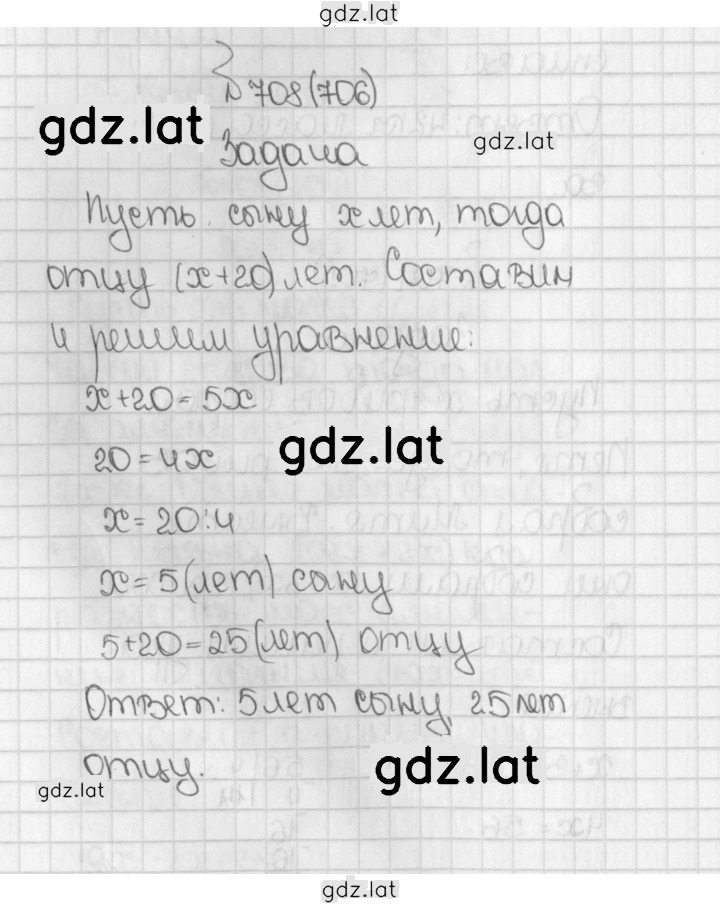 gdz.lat
№ 708(706)
gdz.lat
gdz.lat
Задача
Пусть сыну x лет, тогда
отцу (x+20) лет. Составим
и решим уравнение:
x+20=5x
gdz.lat
20=4x
x=20:4
x=5(лет) сыну
5+20=25(лет) отцу
Ответ: 5 лет сыну, 25 лет
отцу.
gdz.lat
gdz.lat
gdz.lat